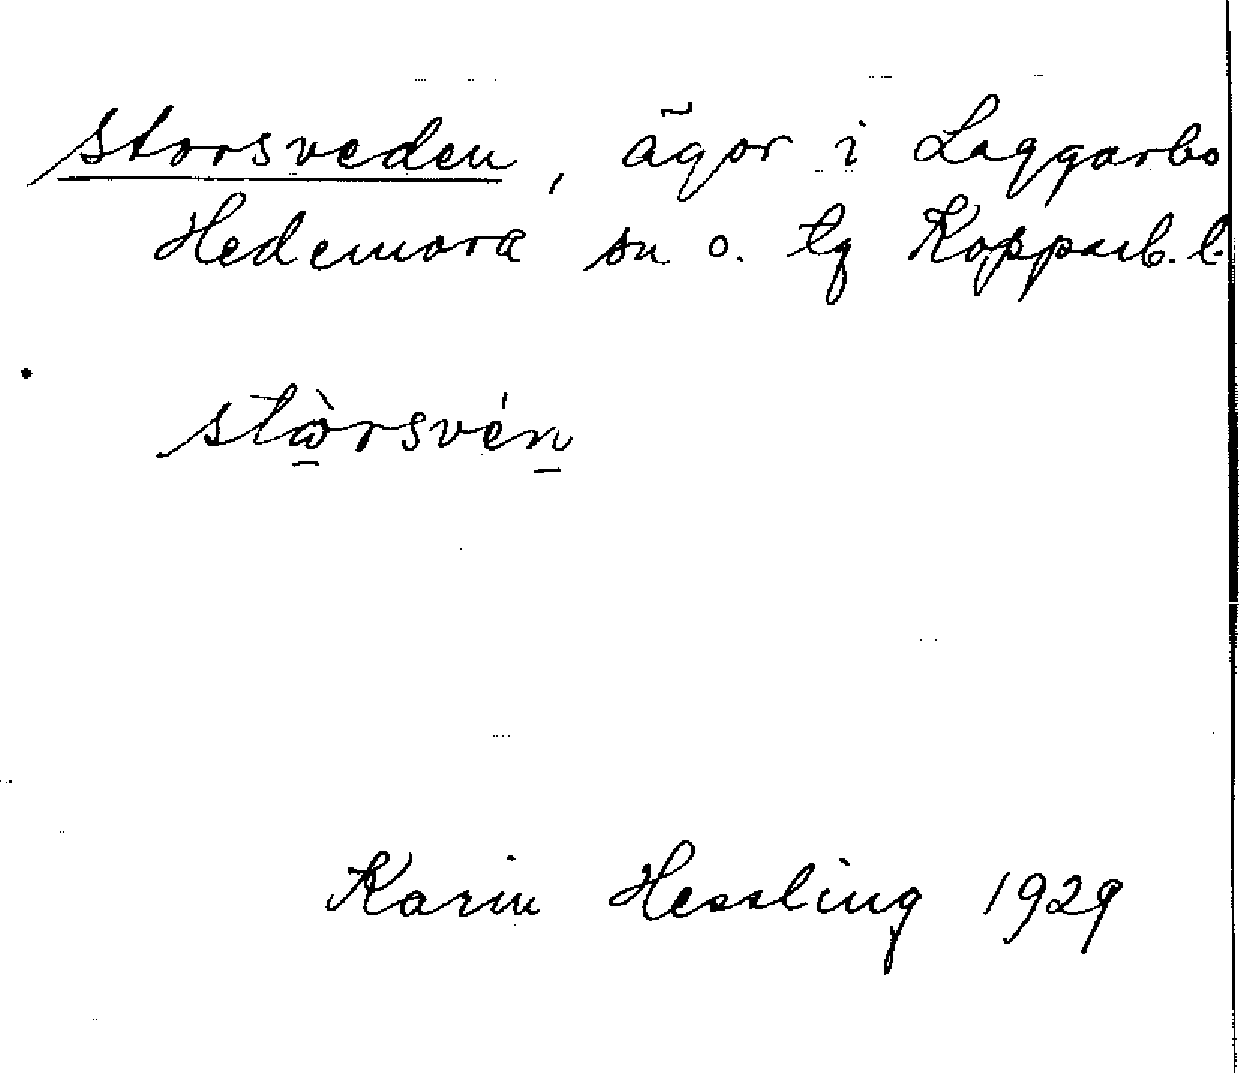 storsveden, ägor i Laggarbo
Hedemora sn o. tg Kopparb. l.
stὼ̱rsvén̠
Karin Hessling 1929